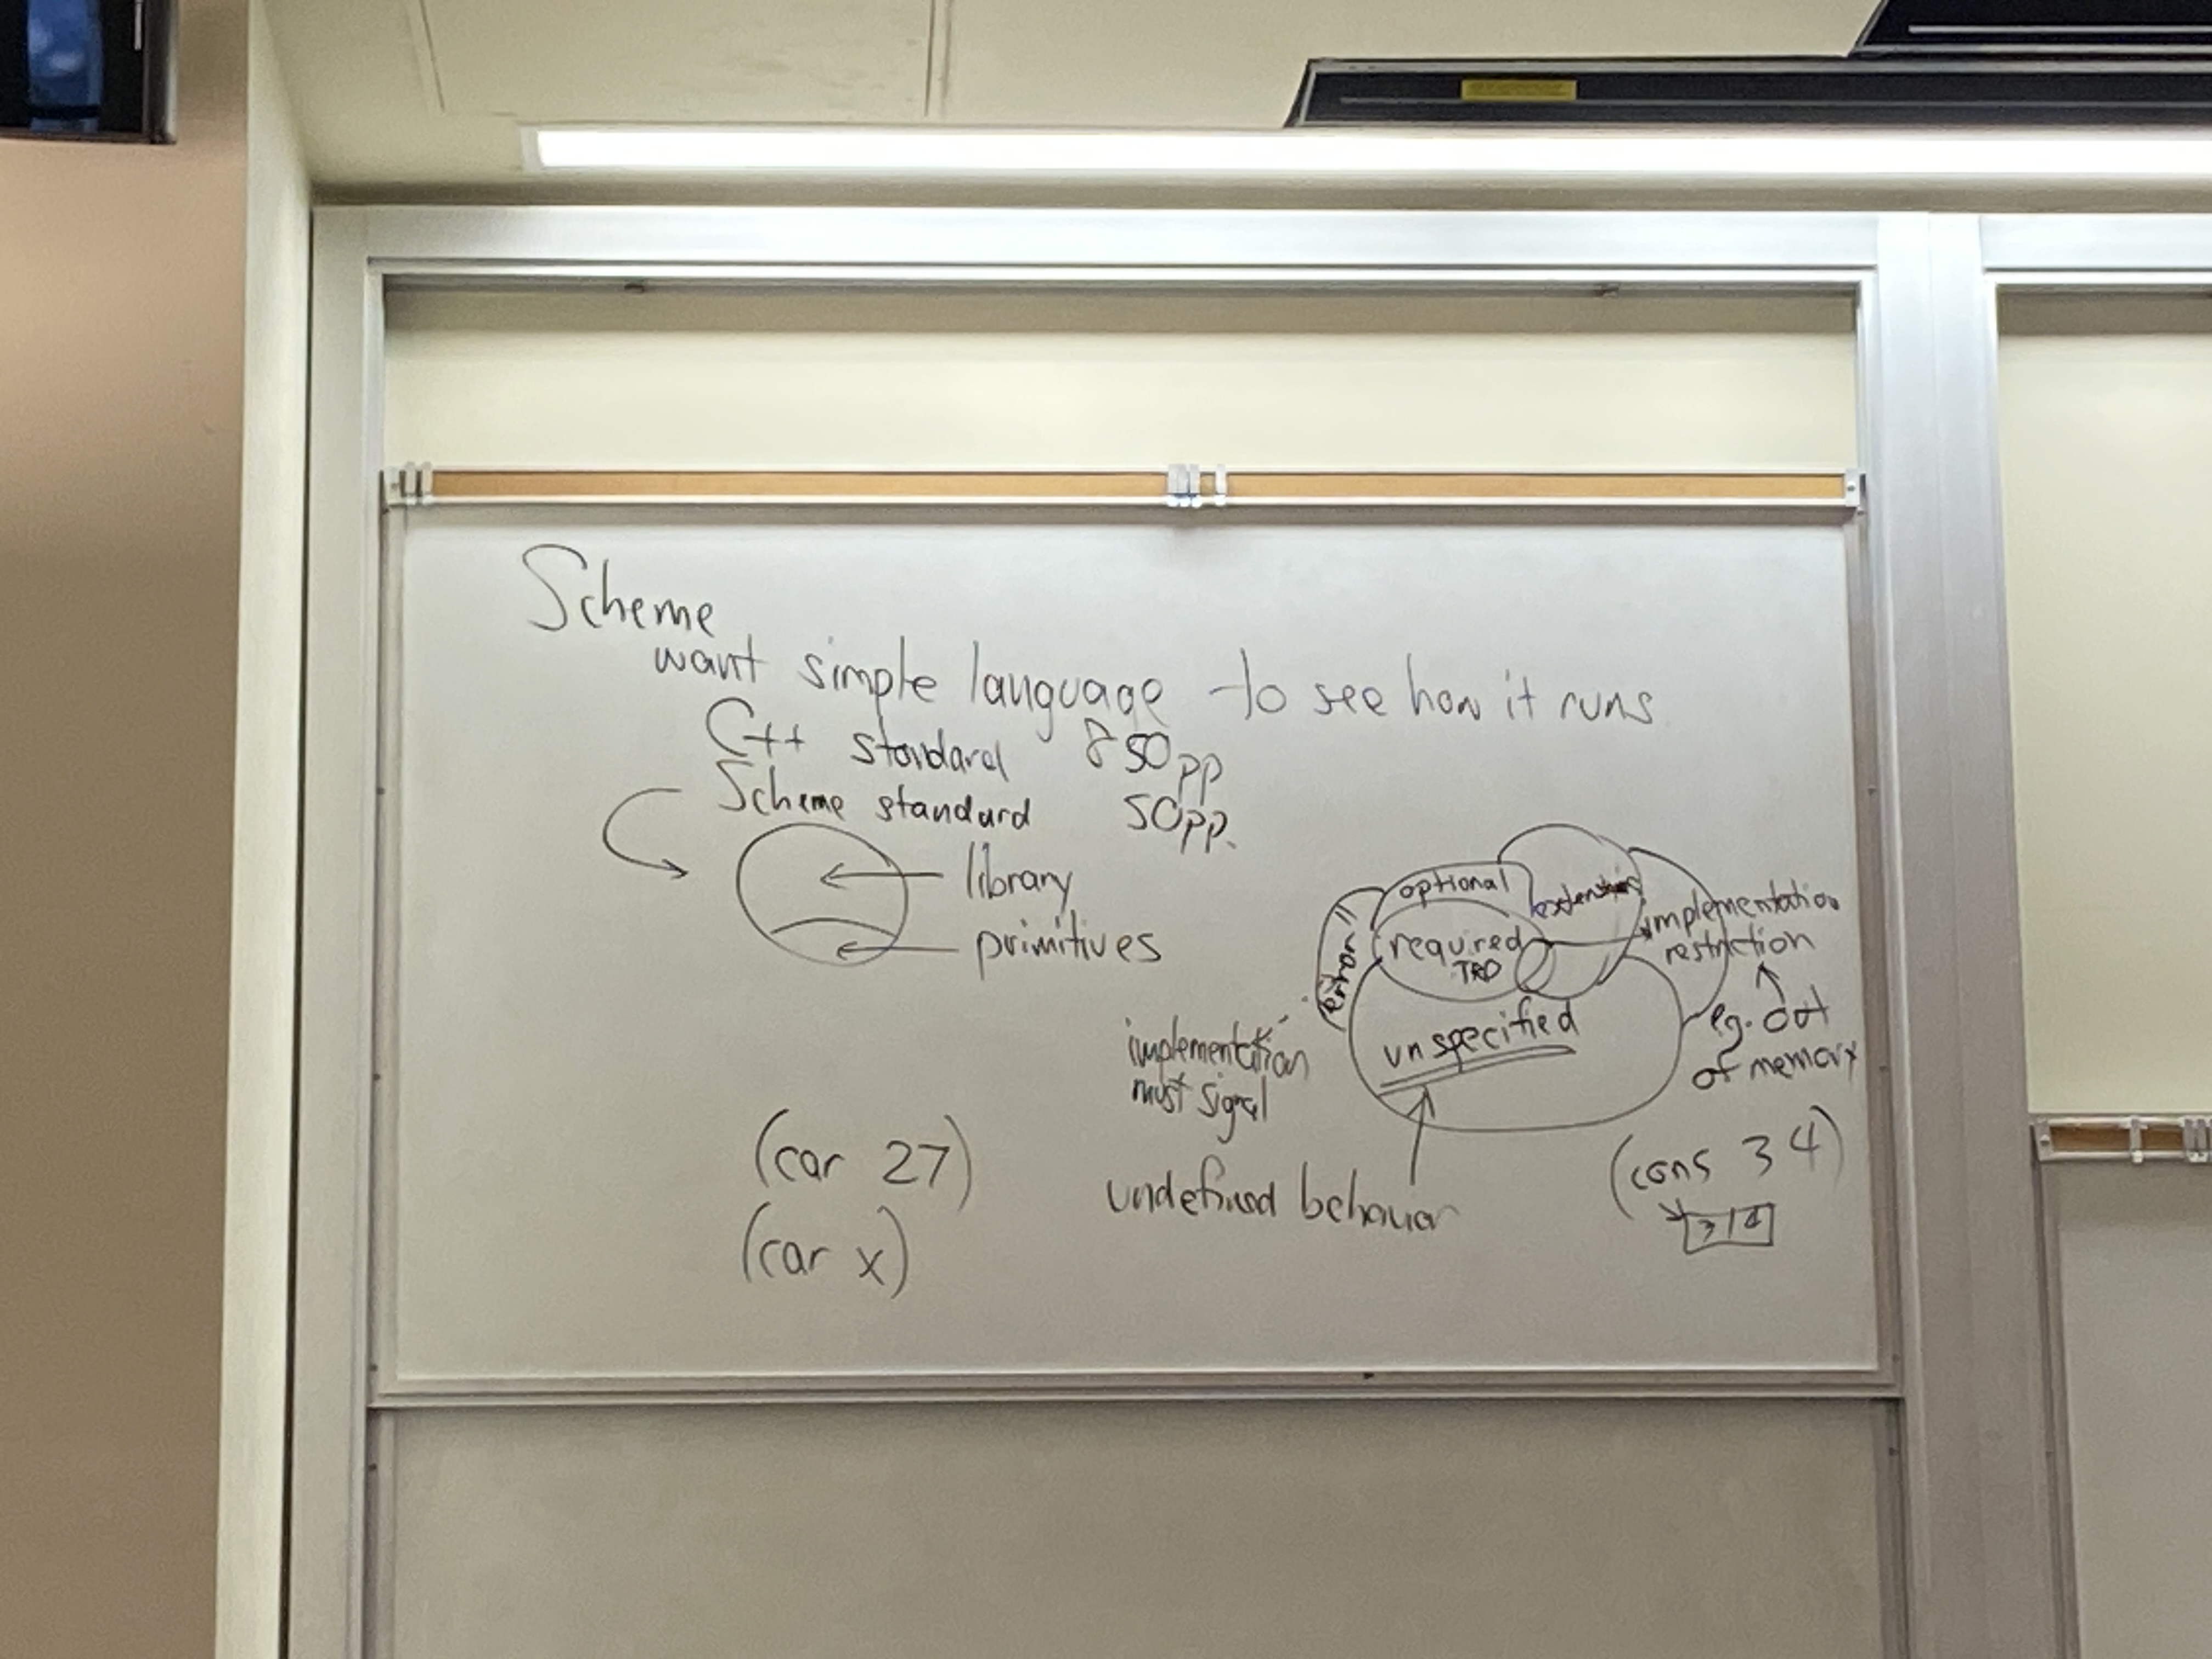 Scheme
want simple language to see how it runs
C++ standard 850pp
Scheme standard 50pp.
library
primitives
optional
extensions
implementation
restriction
required
TRO
error
unspecified
e.g. out
of memory
implementation
must signal
undefined behavior
(car 27)
(car x)
(cons 3 4)
3 4